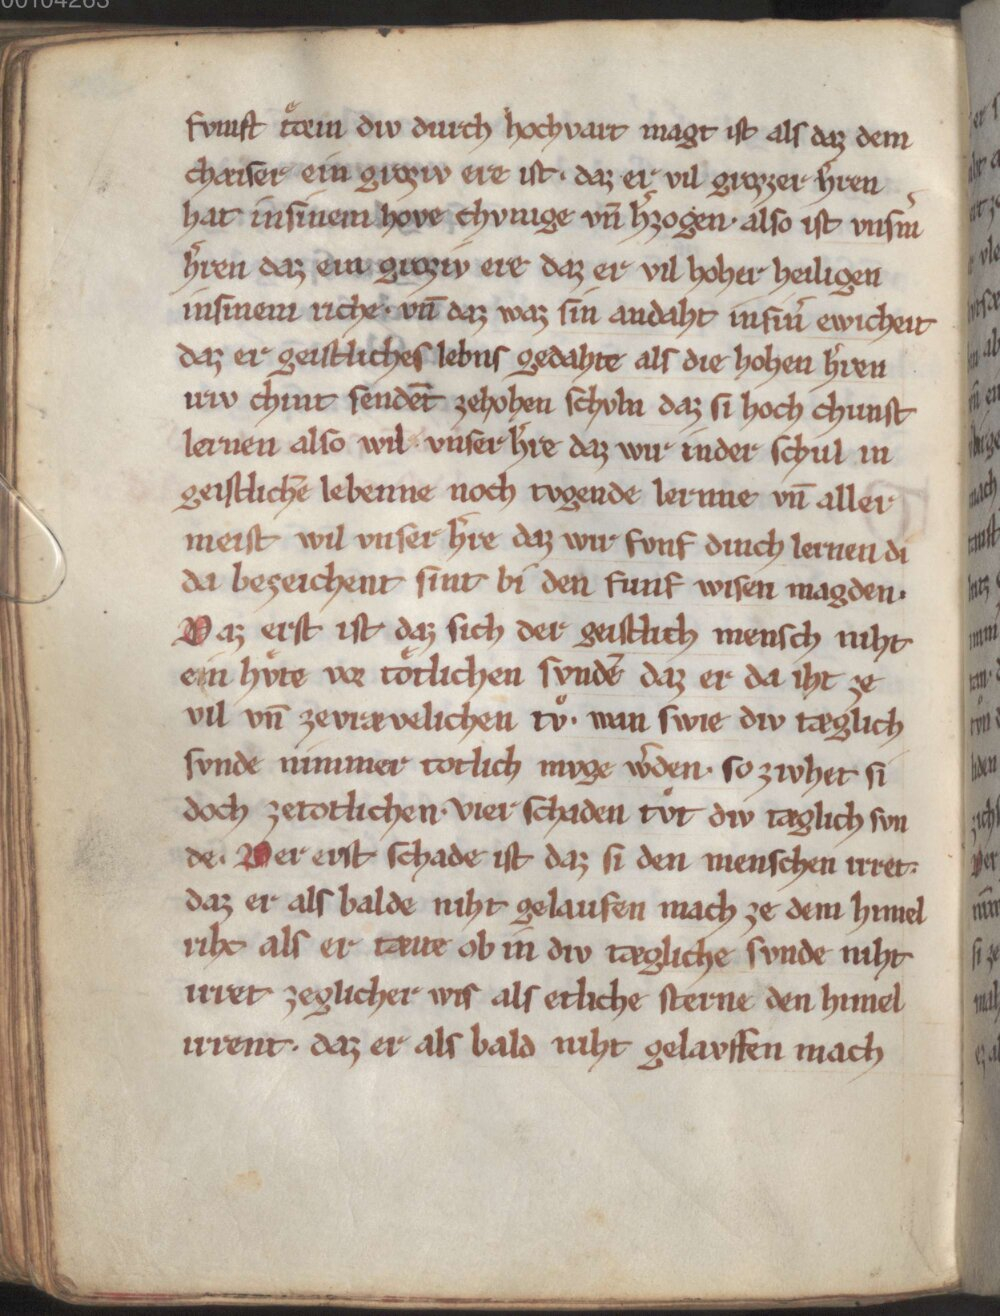 00104263
fvmft tœ̊in div durch hochvart magt ist als daz dem
chæiser ein grozziv ere ist· daz er vil grozzer h̾ren
hat insinem hove chvnige vn̄ h̾zogen· also ist vnsm̾
h̾ren daz ein grozziv ere daz er vil hoher heiligen
insinem riche· vn̄ daz waz sin andaht insin̾ ewicheit
daz er geistliches lebns gedahte als die hohen h̾ren
iriv chint sendēt zehohen schvln daz si hoch chunst
lernen also wil vnser h̾re daz wir inder schul in
geistlichē lebenne noch tvgende lernne vn̄ aller
meist wil vnser h̾re daz wir fvnf dinch lernen di
da bezeichent sint bi den funf wisen magden·
Daz erst ist daz sich der geistlich mensch niht
ein hvͤte vor toͤtlichen svndē daz er da iht ze
vil vn̄ zevrævelichen tvͦ· wan swie div tæglich
svnde nimmer totlich mvge w̾den· so zivhet si
doch zetotlichen· vier schaden tvͦt div tæglich svn
de· Der erst schade ist daz si den menschen irret·
daz er als balde niht gelaufen mach ze dem himel
rihc als er tæte ob in div tægliche svnde niht
irret zeglicher wis als etliche sterne den himel
irrent· daz er als bald niht gelavffen mach